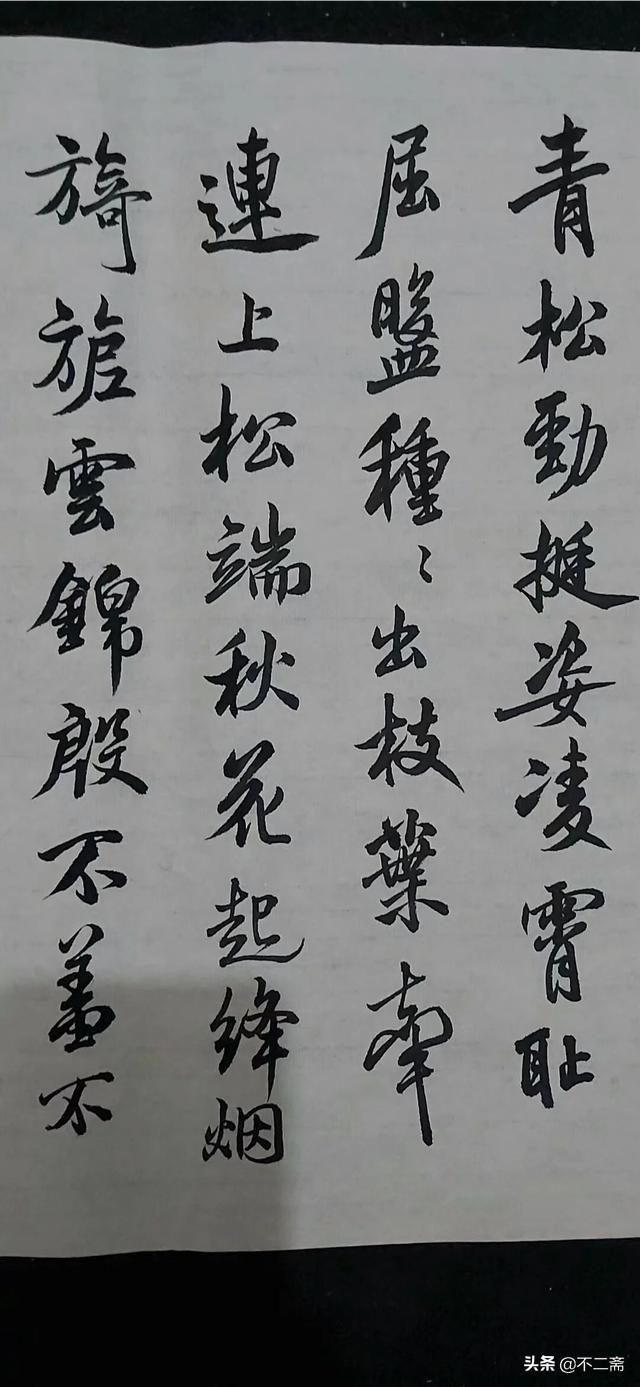 青松勁挺姿凌霄耻
屈盤種〻出枝葉牽
連上松端秋花起絳烟
旖旎雲錦殷不羞不
头条 @不二斋